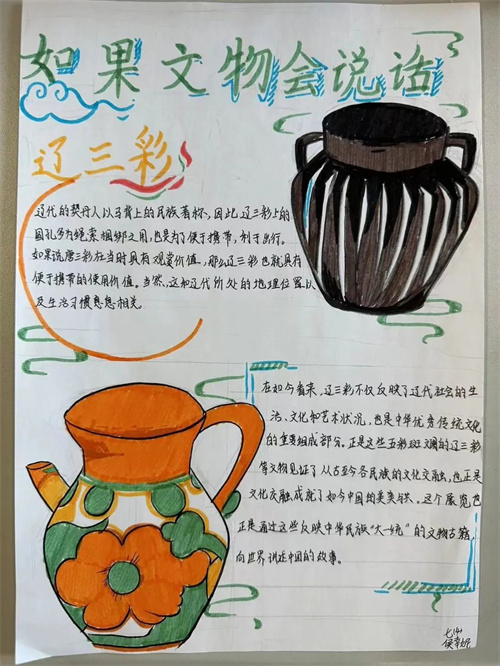 如果文物会说话
辽三彩
辽代的契丹人以马背上的民族著称、因此,辽三彩上的
圆孔多为绳索捆绑之用,也是为了便于携带,利于出行。
如果说唐三彩在当时具有观赏价值,那么辽三彩也就具有
便于携带的使用价值。当然、这和辽代所处的地理位置以
及生活习惯息息相关
在如今看来,辽三彩不仅反映了辽代社会的生
活、文化和艺术状况,也是中华优秀传统文化
的重要组成部分。正是这些五彩斑斓的辽三彩
等文物见证了从古至今各民族的文化交融,也正是
文化交融成就了如今中国的美美与共。这个展览也
正是通过这些反映中华民族"大一统"的文物古籍,
向世界讲述中国的故事。